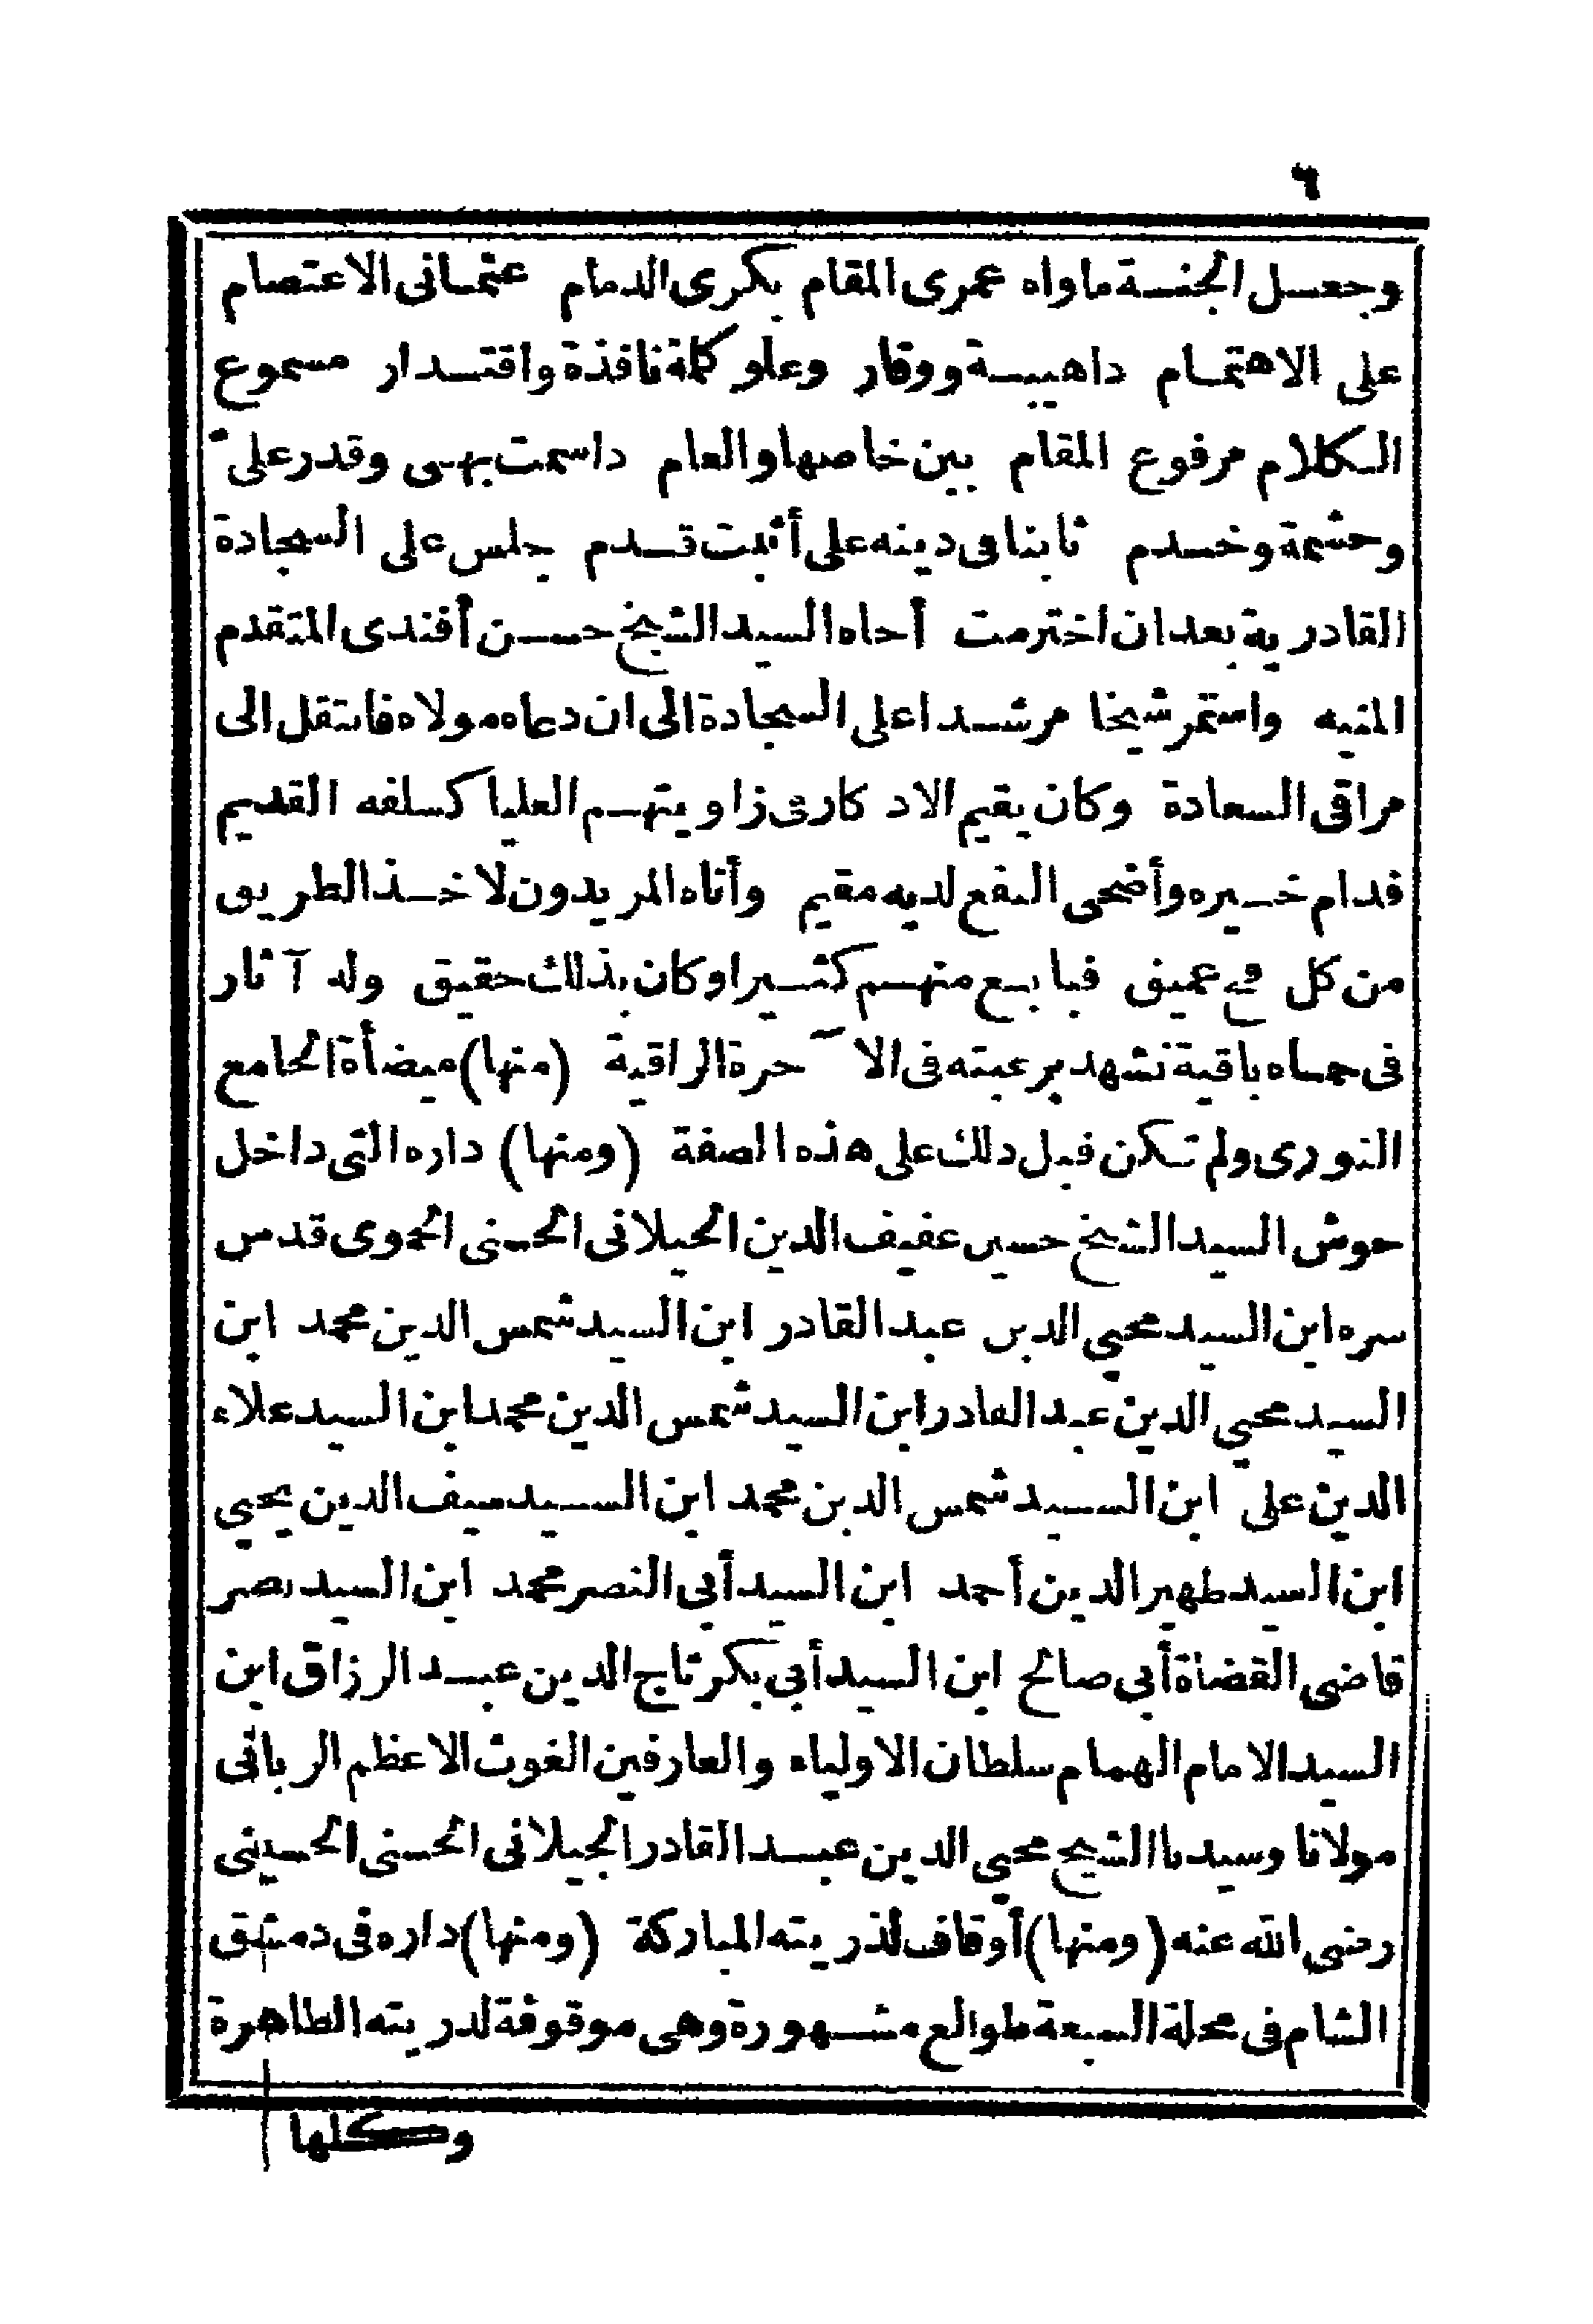 ٦
وجعل الجنة ماواه عمرى المقام بكرى الدمام عثمانى الاعتصام
على الاهتمام داهيبة ووقار وعلو كلمة نافذة واقتدار مسموع
الكلام مرفوع المقام بين خاصها والعام داسمت بهى وقدر على
وحشمة وخدم ثابتا فى دينه على أثبت قدم جلس على السجادة
القادرية بعد ان اخترمت أحاه السيد الشيخ حسن أفندى المتقدم
المنيه واستمر شيخا مرشدا على السجادة الى ان دعاه مولاه فانتقل الى
مراقى السعادة وكان يقيم الادكار فى زاويتهم العليا كسلفه القديم
فدام خيره وأضحى النفع لديه مقيم وأتاه المريدون لاخذ الطريق
من كل فج عميق فبايع منهم كثيرا وكان بذلك حقيق وله آثار
فى حماه باقية تشهد برغبته فى الآحرة الراقية (منها) ميضأة الجامع
النورى ولم تكن قبل دلك على هذه الصفة (ومنها) داره التى داخل
حوش السيد الشيخ حسين عفيف الدين الجيلانى الحسنى الحموى قدس
سره ابن السيد محيي الدين عبد القادر ابن السيد شمس الدين محمد ابن
السيد محيي الدين عبد القادر ابن السيد شمس الدين محمد ابن السيد علاء
الدين على ابن السيد شمس الدين محمد ابن السيد سيف الدين يحيي
ابن السيد ظهير الدين أحمد ابن السيد أبى النصر محمد ابن السيد نصر
قاضى القضاة أبي صالح ابن السيد أبي بكر تاج الدين عبد الرزاق ابن
السيد الامام الهمام سلطان الاولياء والعارفين الغوث الاعظم الربانى
مولانا وسيدنا الشيخ محيي الدين عبد القادر الجيلانى الحسنى الحسينى
رضى الله عنه (ومنها) أوقاف لذريته المباركة (ومنها) داره فى دمشق
الشام فى محلة السبعة طوالع مشهورة وهى موقوفة لدريته الطاهرة
وكلها